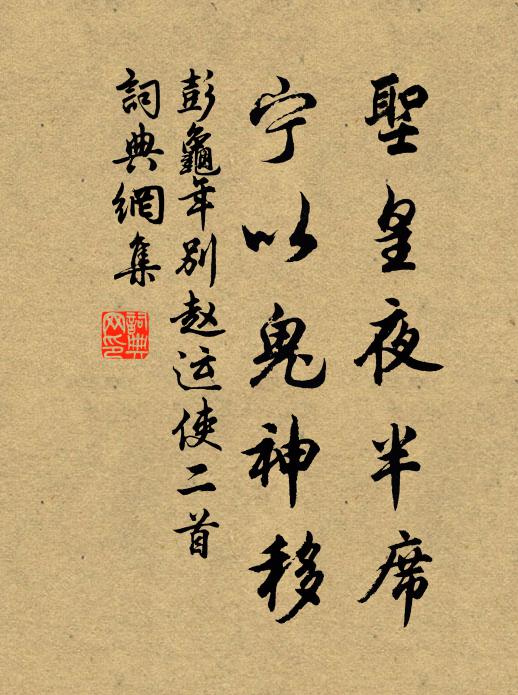 聖皇夜半席
宁以鬼神移
彭龜年别赵运使二首
詞典網集
詞典網印